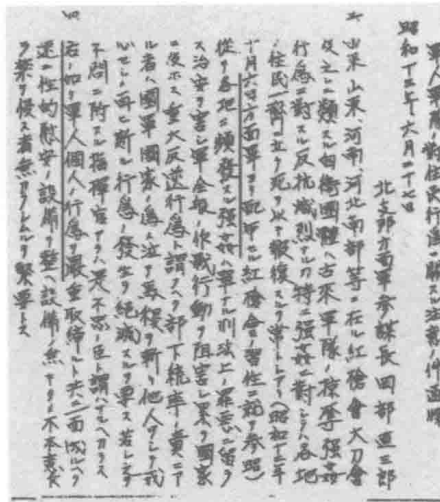 軍人軍隊ノ對住民行爲ニ關スル注意ノ件通牒
昭和十三年六月二十七日
北支那方面軍參謀長 岡部直三郎
山東、河南、河北南部等ニ在ル紅槍會大刀會
及之ニ類スル自衛團體ハ古來軍隊ノ掠奪強姦
行爲ニ對スル反抗熾烈ナルカ特ニ強姦ニ對シテハ各地
ノ住民一齊ニ立チ死ヲ以テ報復スルヲ常トシアリ(昭和十二年
十月六日方面軍ヨリ配布セル紅槍會ノ習性ニ就テ參照)
從テ各地ニ頻發スル強姦ハ單ナル刑法上ノ罪惡ニ留ラ
ス治安ヲ害シ軍全般ノ作戰行動ヲ阻害シ累ヲ國家
ニ及ホス重大反逆行爲ト謂フヘク部下統率ノ責ニア
ル者ハ國軍國家ノ爲泣テ馬稷ヲ斬リ他人ヲシテ戒
心セシメ再ヒ斯ル行爲ノ發生ヲ絶滅スルヲ要ス若シ之ヲ
不問ニ附スル指揮官アラハ是不忠ノ臣ト謂ハサルヘカラス
右ノ如ク軍人個人ノ行爲ヲ嚴重取締ルト共ニ一面成ルヘク
速ニ性的慰安ノ設備ヲ整ヘ設備ノ無キタメ不本意乍
ラ禁ヲ侵ス者無カラシムルヲ緊要トス